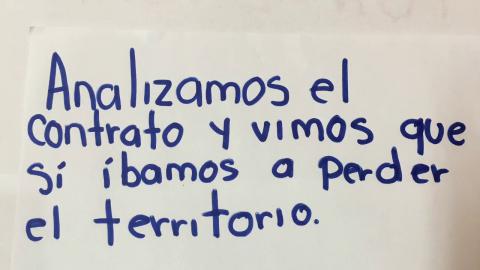 Analizamos el
contrato y vimos que
sí íbamos a perder
el territorio.